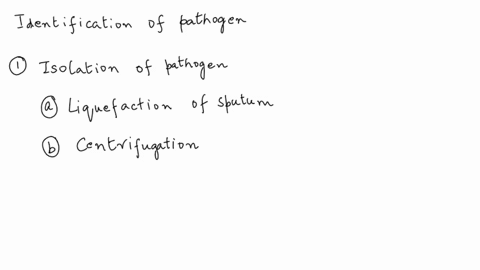 Identification of pathogen
① Isolation of pathogen
ⓐ Liquefaction of sputum
ⓑ Centrifugation